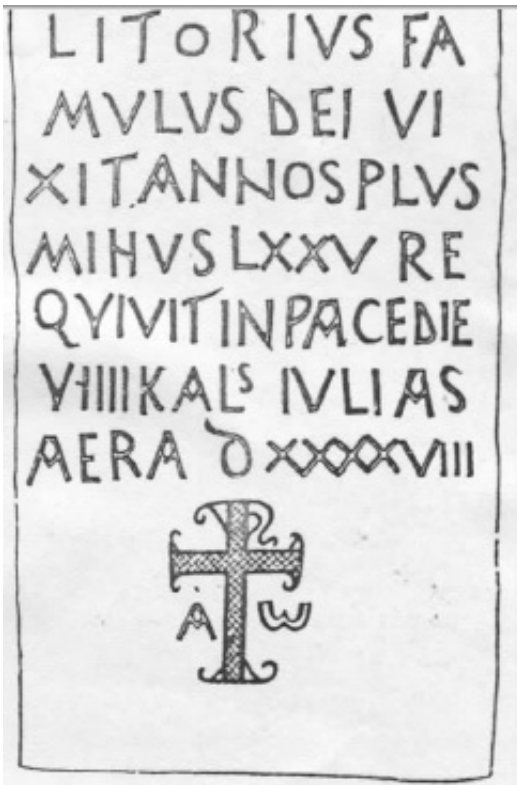 LITORIUS FA
MVLVS DEI VI
XIT ANNOS PLVS
MINVS LXXV RE
QVIVIT IN PACE DIE
VIIII KALS IVLIAS
AERA D XXXXVIII
A ω